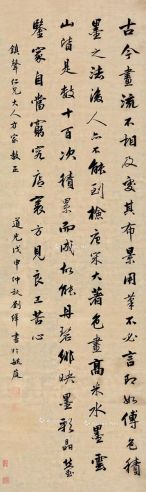 古今畫流不相及處其布景用筆不必言即如傅色積
墨之法後人亦不能到檢唐宋大著色畫高米水墨雲
山皆是數十百次積累而成故能丹碧緋映墨彩晶瑩
鑒家自當窮究底裏方見良工苦心
鎮聲仁兄大人方家教正 道光戊申仲秋劉繹書於